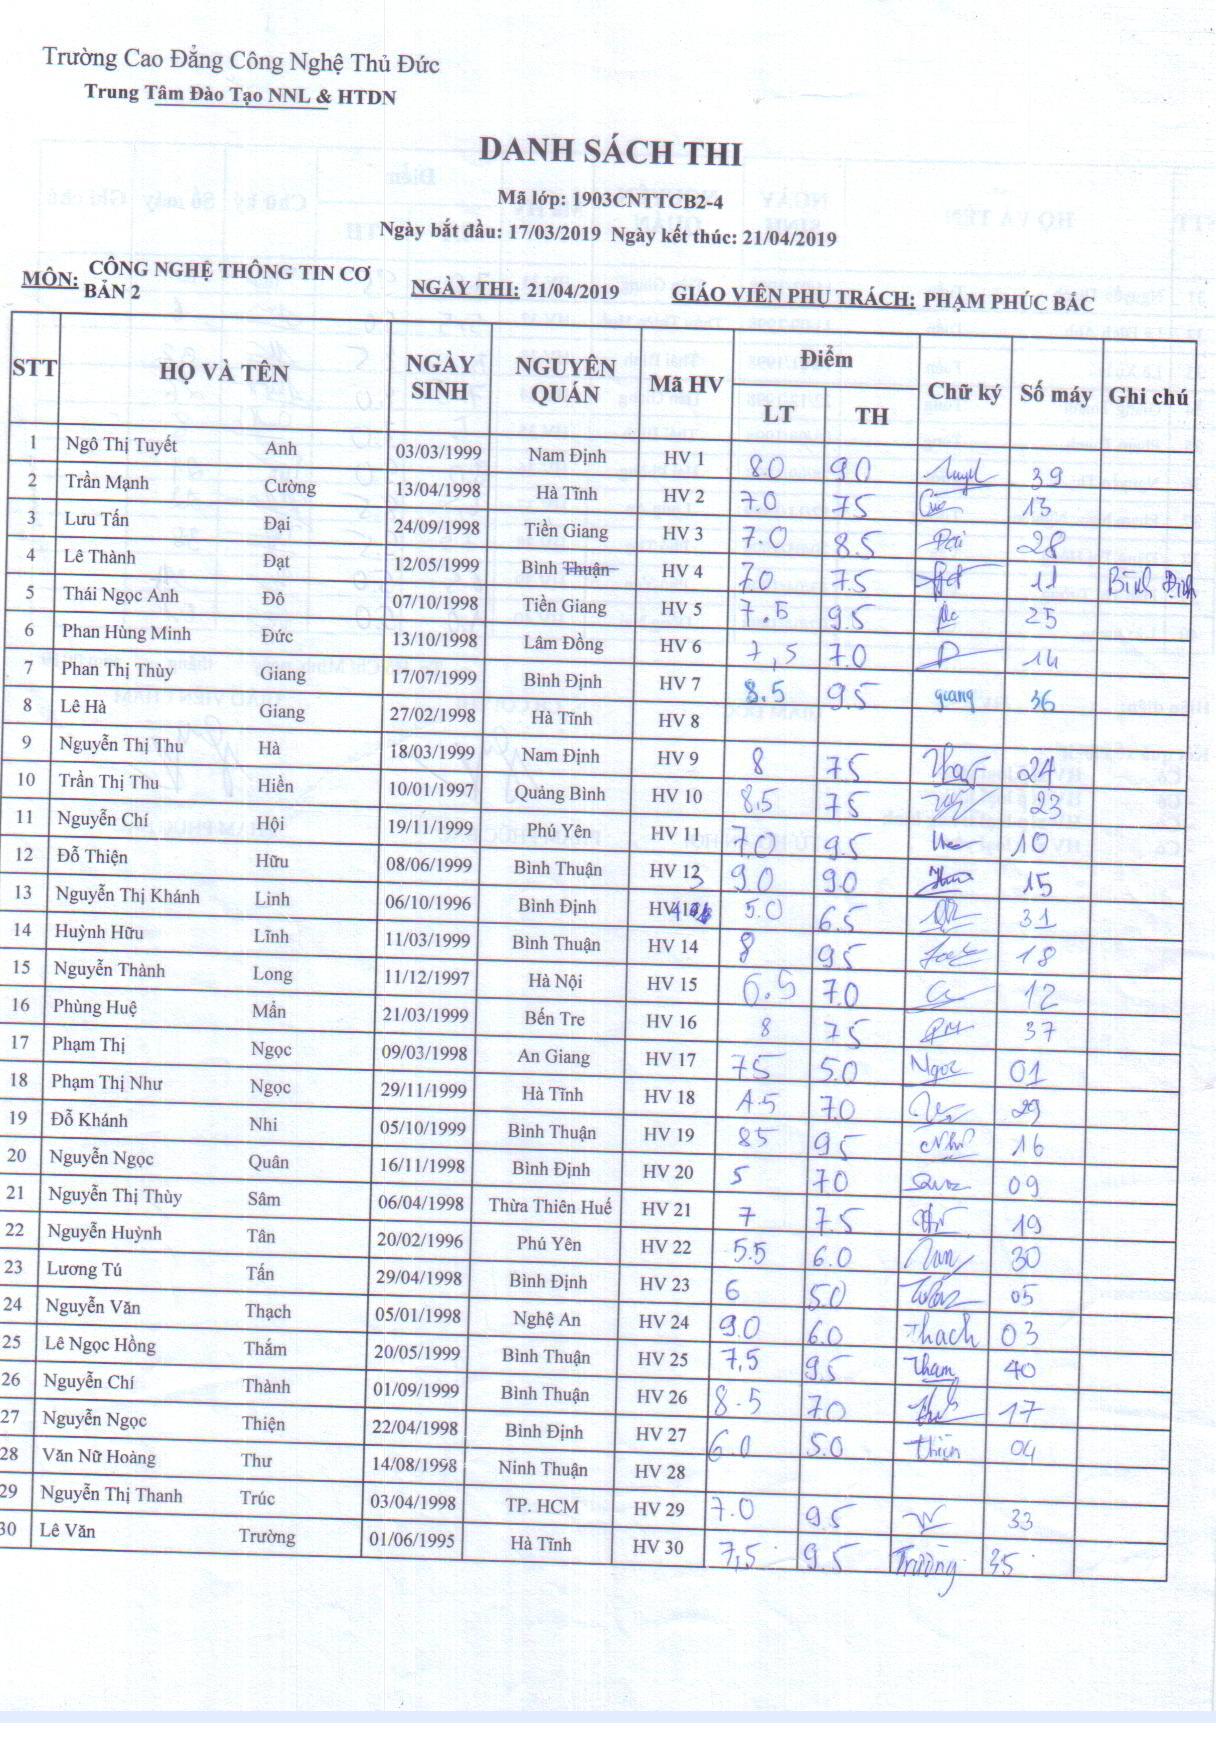 Trường Cao Đẳng Công Nghệ Thủ Đức
Trung Tâm Đào Tạo NNL & HTDN
DANH SÁCH THI
Mã lớp: 1903CNTTCB2-4
Ngày bắt đầu: 17/03/2019 Ngày kết thúc: 21/04/2019
MÔN: CÔNG NGHỆ THÔNG TIN CƠ BẢN 2 NGÀY THI: 21/04/2019 GIÁO VIÊN PHỤ TRÁCH: PHẠM PHÚC BẮC
STT HỌ VÀ TÊN NGÀY SINH NGUYÊN QUÁN Mã HV Điểm Chữ ký Số máy Ghi chú
LT TH
1 Ngô Thị Tuyết Anh 03/03/1999 Nam Định HV 1 80 90 39
2 Trần Mạnh Cường 13/04/1998 Hà Tĩnh HV 2 7.0 75 13
3 Lưu Tấn Đại 24/09/1998 Tiền Giang HV 3 7.0 8.5 28
4 Lê Thành Đạt 12/05/1999 Bình Thuận HV 4 70 7.5 11 Bình Định
5 Thái Ngọc Anh Đô 07/10/1998 Tiền Giang HV 5 7.5 9.5 25
6 Phan Hùng Minh Đức 13/10/1998 Lâm Đồng HV 6 7,5 7.0 14
7 Phan Thị Thùy Giang 17/07/1999 Bình Định HV 7 8.5 95 giang 36
8 Lê Hà Giang 27/02/1998 Hà Tĩnh HV 8
9 Nguyễn Thị Thu Hà 18/03/1999 Nam Định HV 9 8 75 24
10 Trần Thị Thu Hiền 10/01/1997 Quảng Bình HV 10 8,5 75 23
11 Nguyễn Chí Hội 19/11/1999 Phú Yên HV 11 7.0 9.5 10
12 Đỗ Thiện Hữu 08/06/1999 Bình Thuận HV 12 90 90 15
13 Nguyễn Thị Khánh Linh 06/10/1996 Bình Định 5.0 6.5 31
14 Huỳnh Hữu Lĩnh 11/03/1999 Bình Thuận HV 14 8 95 18
15 Nguyễn Thành Long 11/12/1997 Hà Nội HV 15 6.5 7.0 12
16 Phùng Huệ Mẫn 21/03/1999 Bến Tre HV 16 8 75 37
17 Phạm Thị Ngọc 09/03/1998 An Giang HV 17 75 5.0 Ngọc 01
18 Phạm Thị Như Ngọc 29/11/1999 Hà Tĩnh HV 18 7.0 29
19 Đỗ Khánh Nhi 05/10/1999 Bình Thuận HV 19 85 95 16
20 Nguyễn Ngọc Quân 16/11/1998 Bình Định HV 20 5 70 09
21 Nguyễn Thị Thùy Sâm 06/04/1998 Thừa Thiên Huế HV 21 7 7.5 19
22 Nguyễn Huỳnh Tân 20/02/1996 Phú Yên HV 22 5.5 6.0 30
23 Lương Tú Tấn 29/04/1998 Bình Định HV 23 6 50 05
24 Nguyễn Văn Thạch 05/01/1998 Nghệ An HV 24 9.0 6.0 Thach 03
25 Lê Ngọc Hồng Thắm 20/05/1999 Bình Thuận HV 25 7,5 95 Tham 40
26 Nguyễn Chí Thành 01/09/1999 Bình Thuận HV 26 8.5 70 17
27 Nguyễn Ngọc Thiện 22/04/1998 Bình Định HV 27 6.0 5.0 thiện 04
28 Văn Nữ Hoàng Thư 14/08/1998 Ninh Thuận HV 28
29 Nguyễn Thị Thanh Trúc 03/04/1998 TP. HCM HV 29 7.0 9.5 33
30 Lê Văn Trường 01/06/1995 Hà Tĩnh HV 30 7,5 9.5 Trường 35